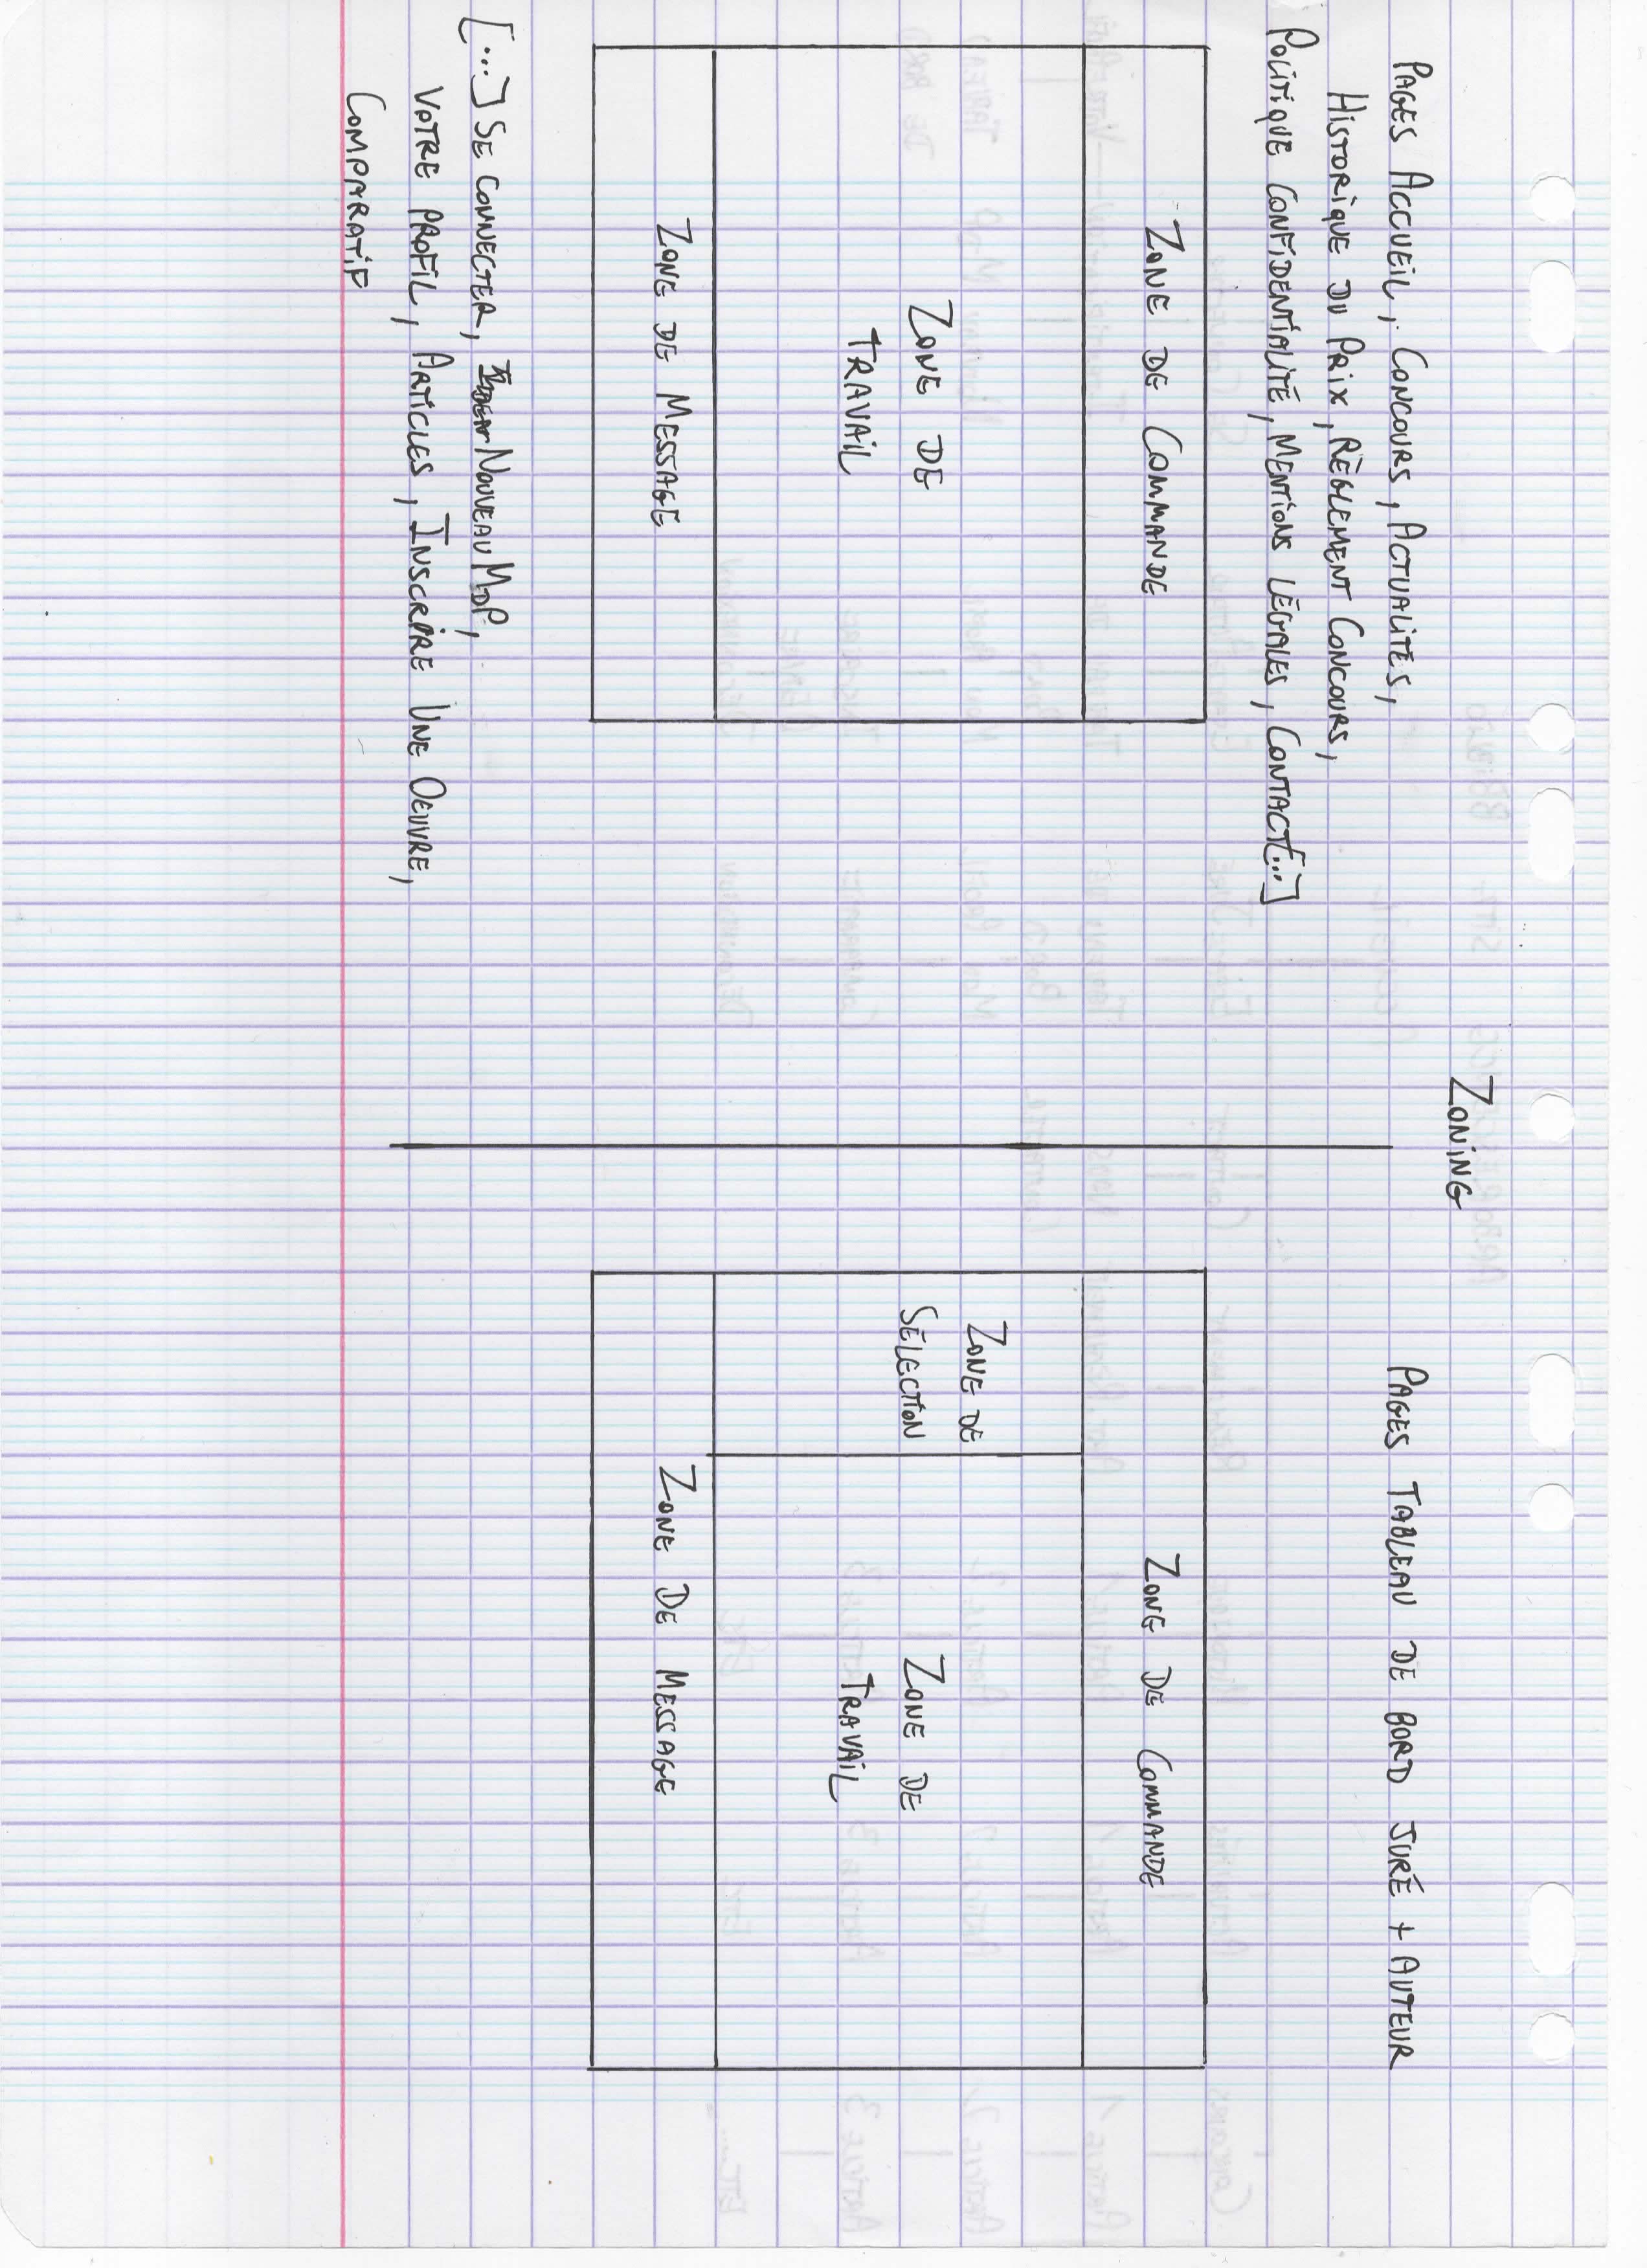 Zoning
Pages Accueil, Concours, Actualités,
Historique du Prix, Règlement Concours,
Politique confidentialité, Mentions légales, Contact [...]
Zone de Commande
Zone de
Travail
Zone de Message
[...] Se connecter, Nouveau MdP,
votre profil, Articles, Inscrire Une Oeuvre,
Comparatif
Pages Tableau de bord juré + auteur
Zone de Commande
Zone de
Sélection
Zone de
Travail
Zone de Message